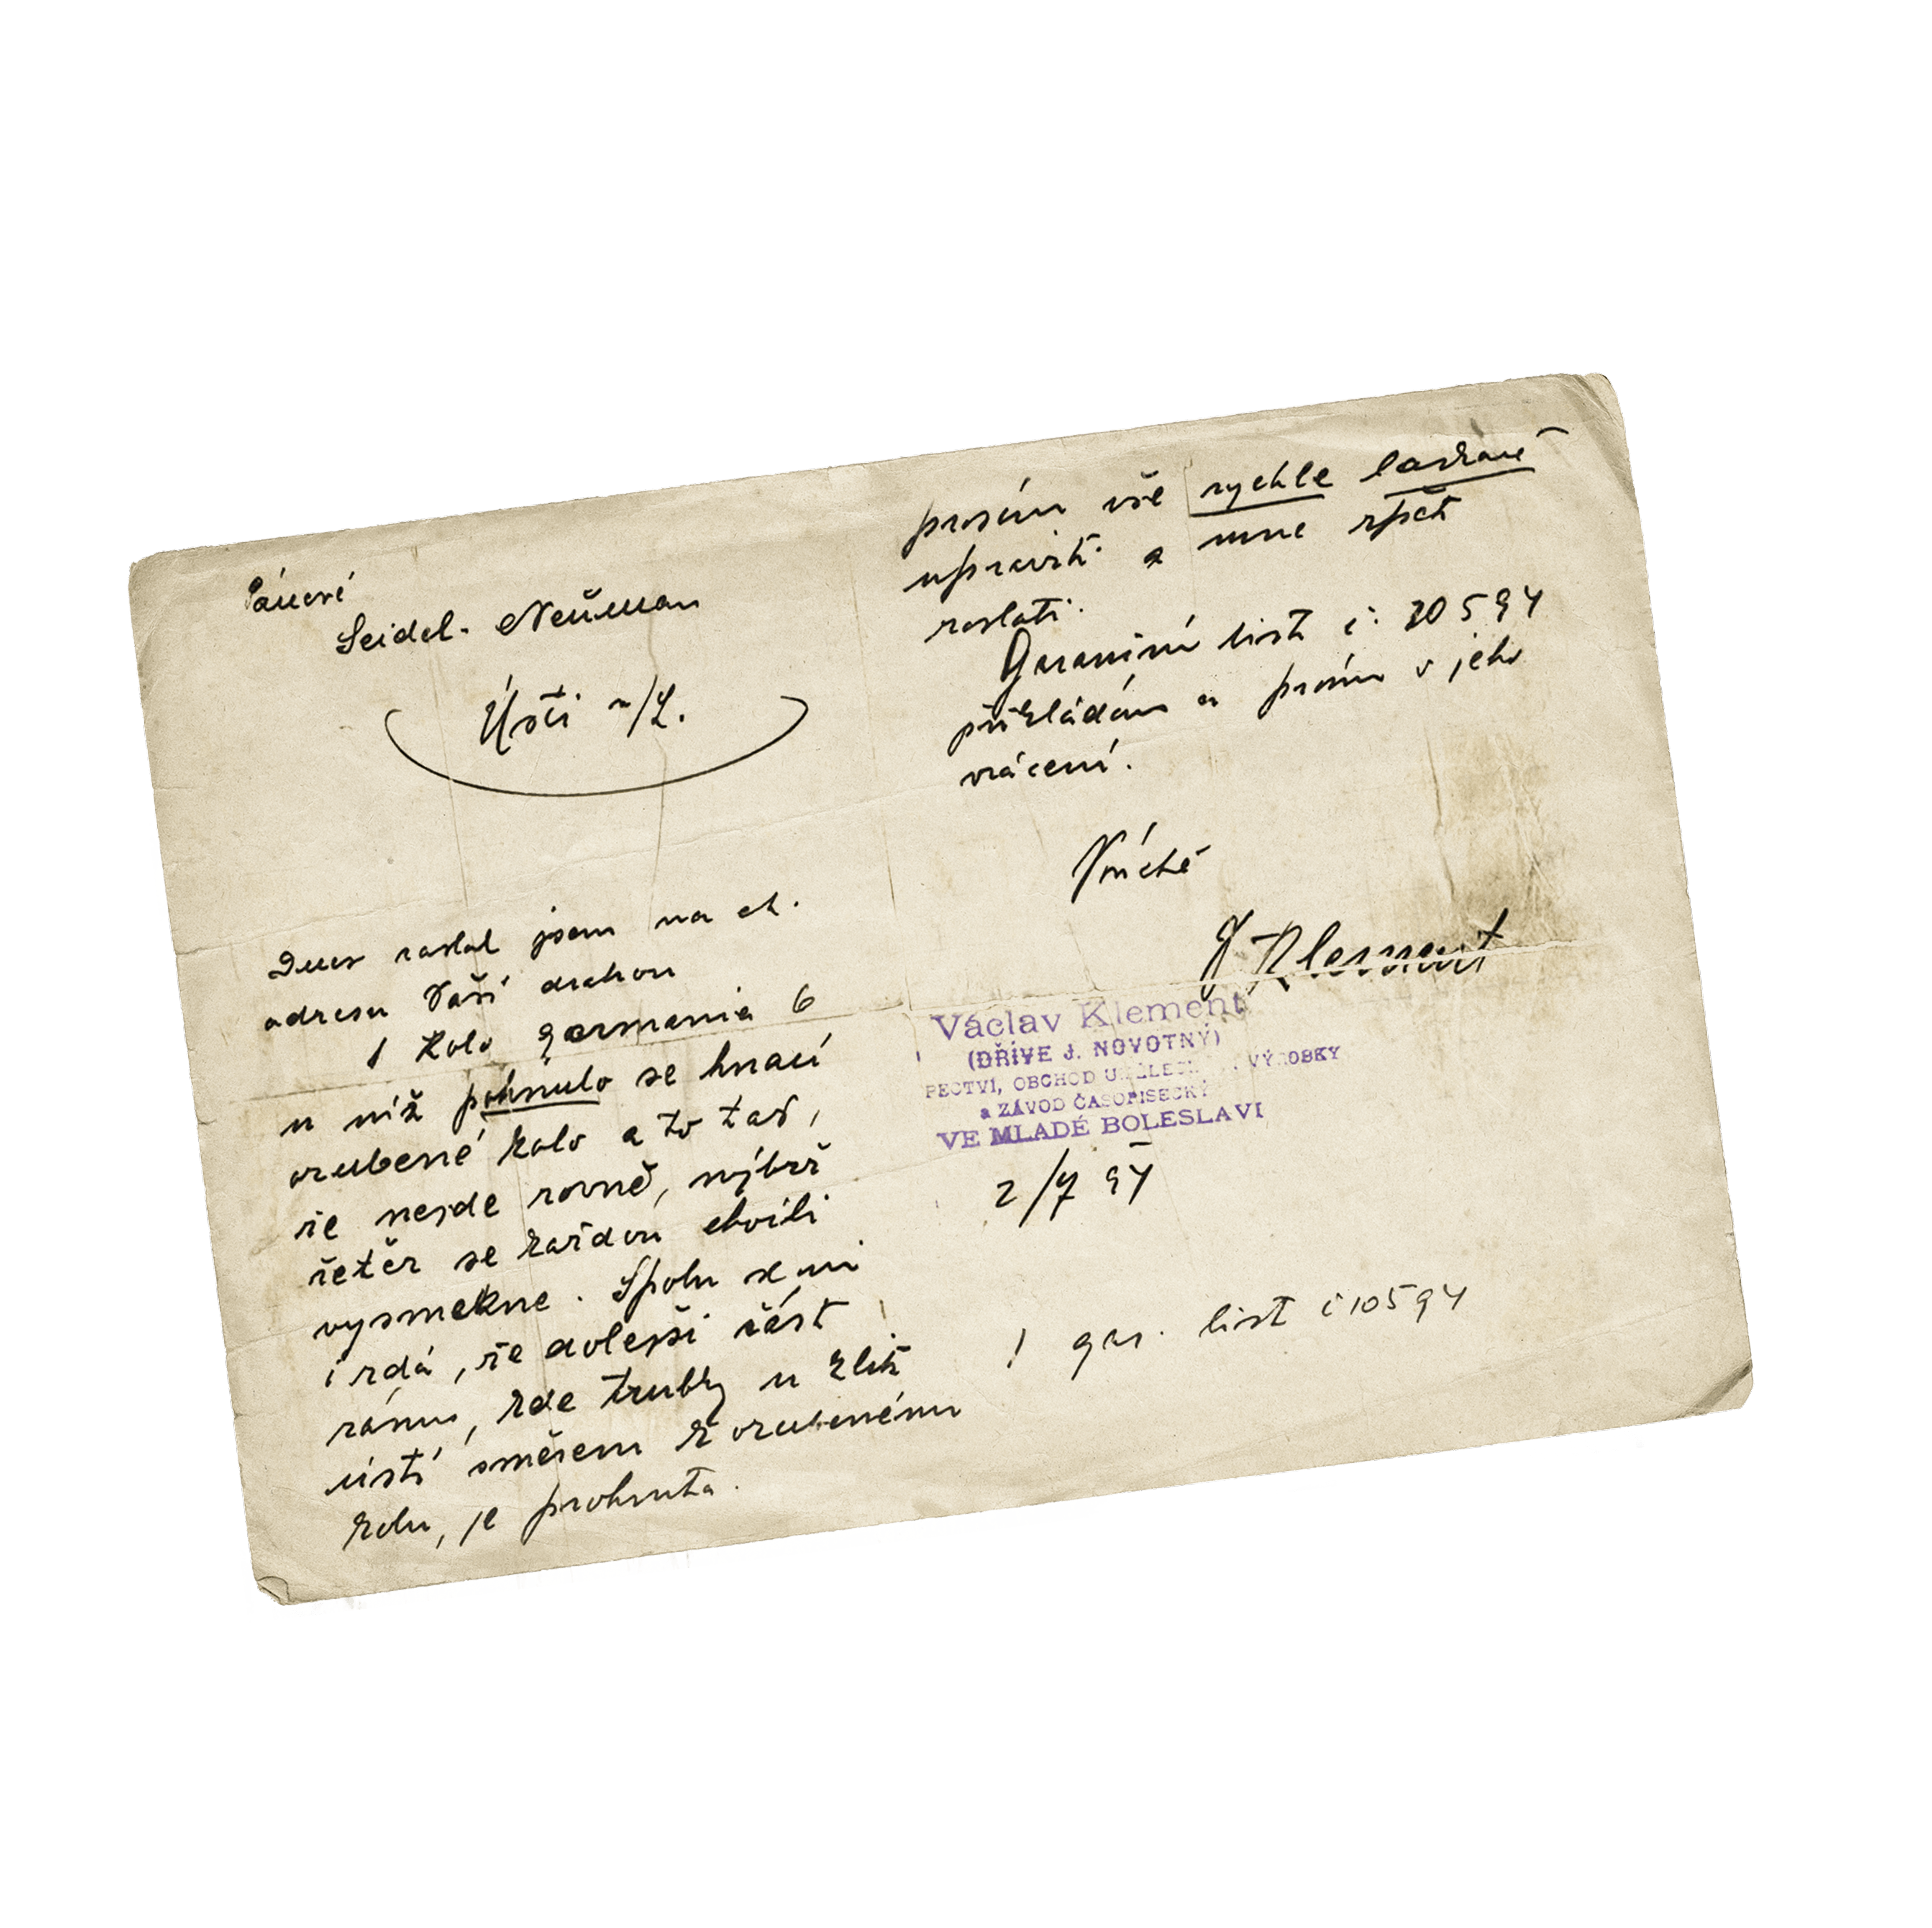 Pánové
Seidel-Neuman
Ústí n/L.
Dnes zaslal jsem na ct.
adresu Vaší drahou
1 kolo germania 6
u níž pohnulo se hnací
ozubené kolo a to tak,
že nejde rovně, nýbrž
řetěz se každou chvíli
vysmekne. Spolu se mi
i zdá, že dolejší část
rámu, kde trubky u klik
ústí směrem k ozubenému
kolu, je prohnuta.
prosím vše rychle laskavě
upraviti a mne zpět
zaslati.
Garanční list č: 10594
přikládám a prosím o jeho
vrácení.
V úctě
Klement
Václav Klement
(DŘÍVE J. NOVOTNÝ)
OBCHOD VÝROBKY
a ZÁVOD ČASOPISECKÝ
VE MLADÉ BOLESLAVI
2/7 94
1 gar. list č 10594